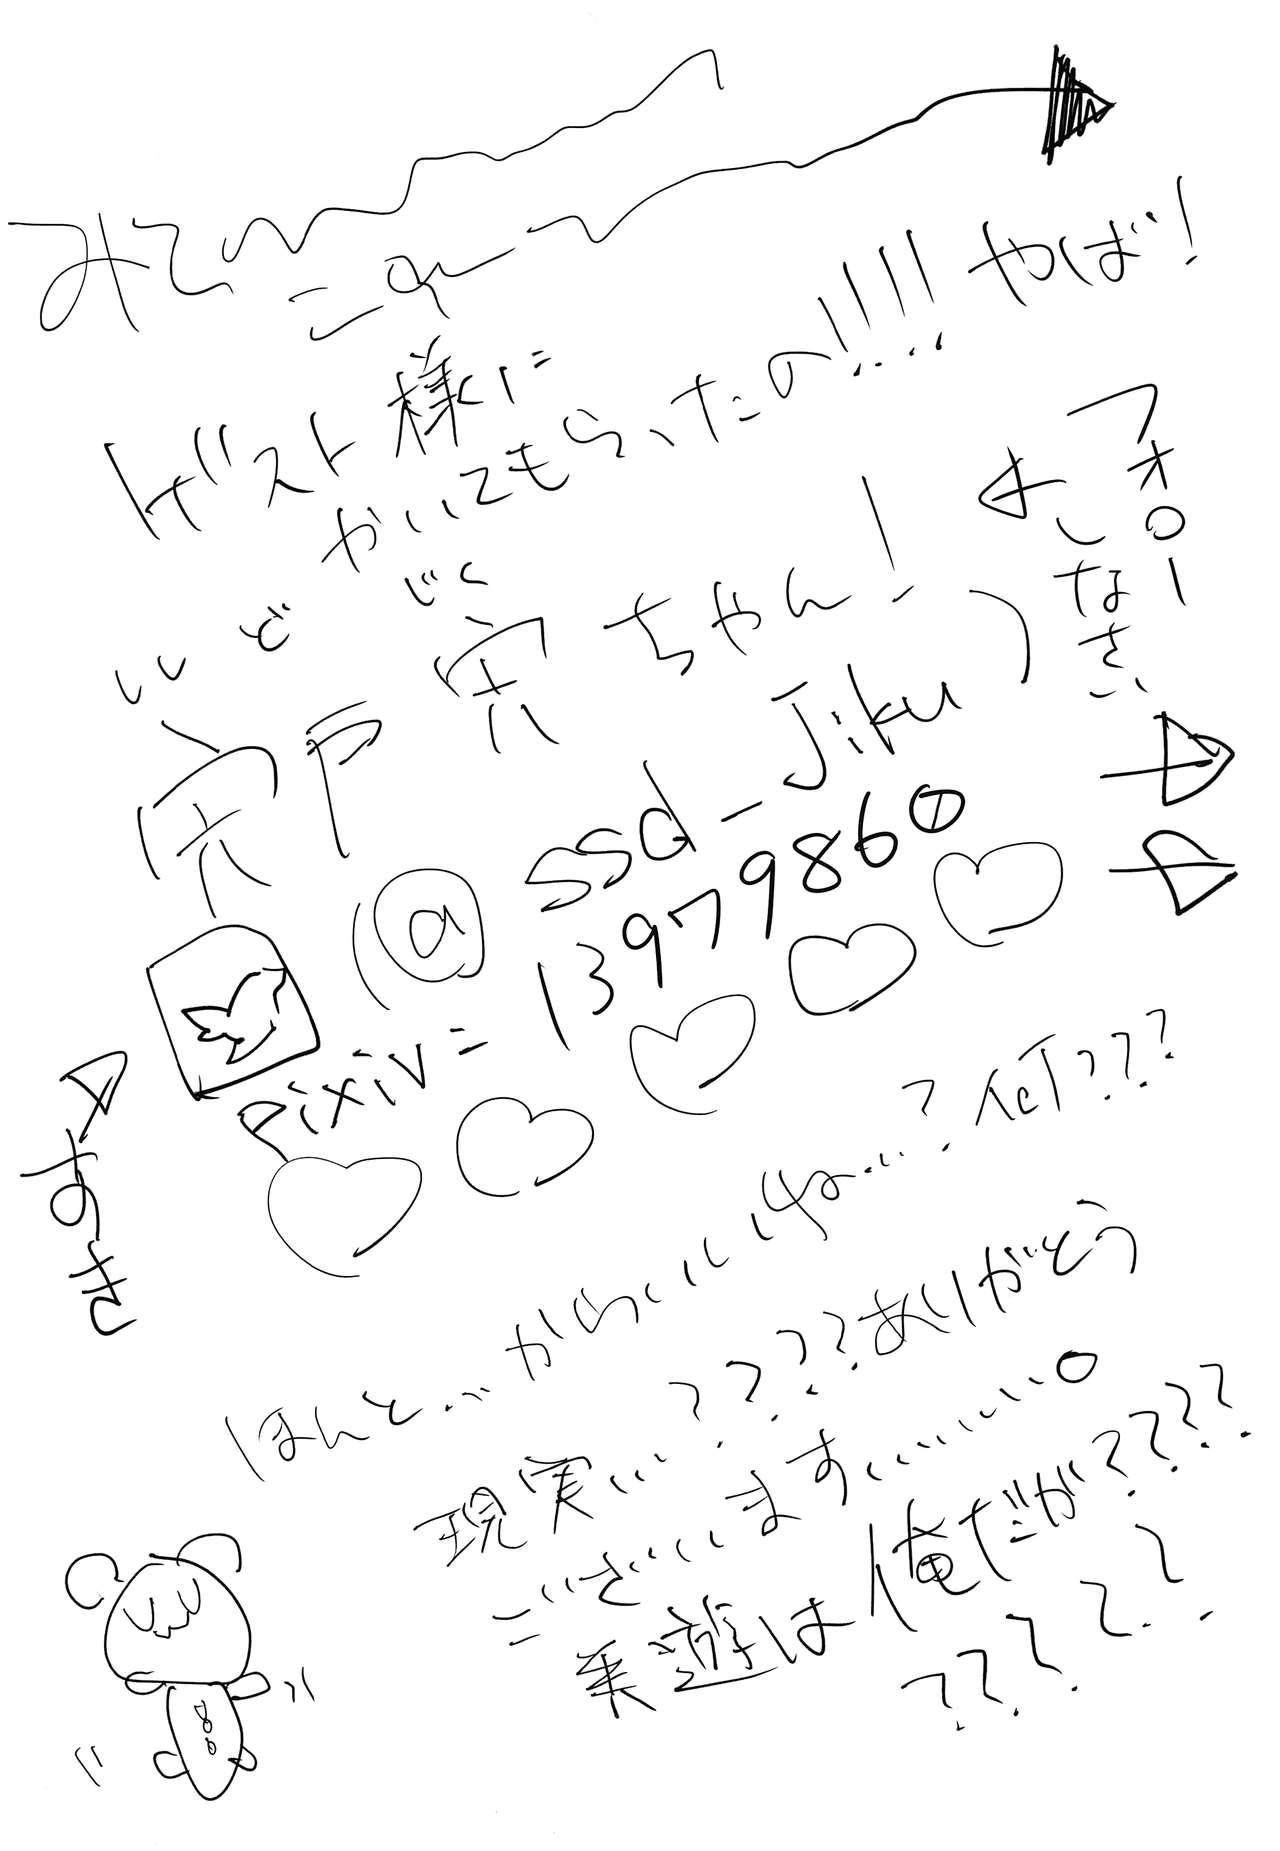 みて
このー
やば!
ゲスト様に
かいてもらったの!!!!
フォロー
しなさい
ししど じく
宍戸 宍 ちゃん!
(@ssd-Jiku)
pixiv=13979860
あき
ほんと...かわいいね...?何???
現実...????ありがとう
ございます......。
乗遊は俺だが????
?????